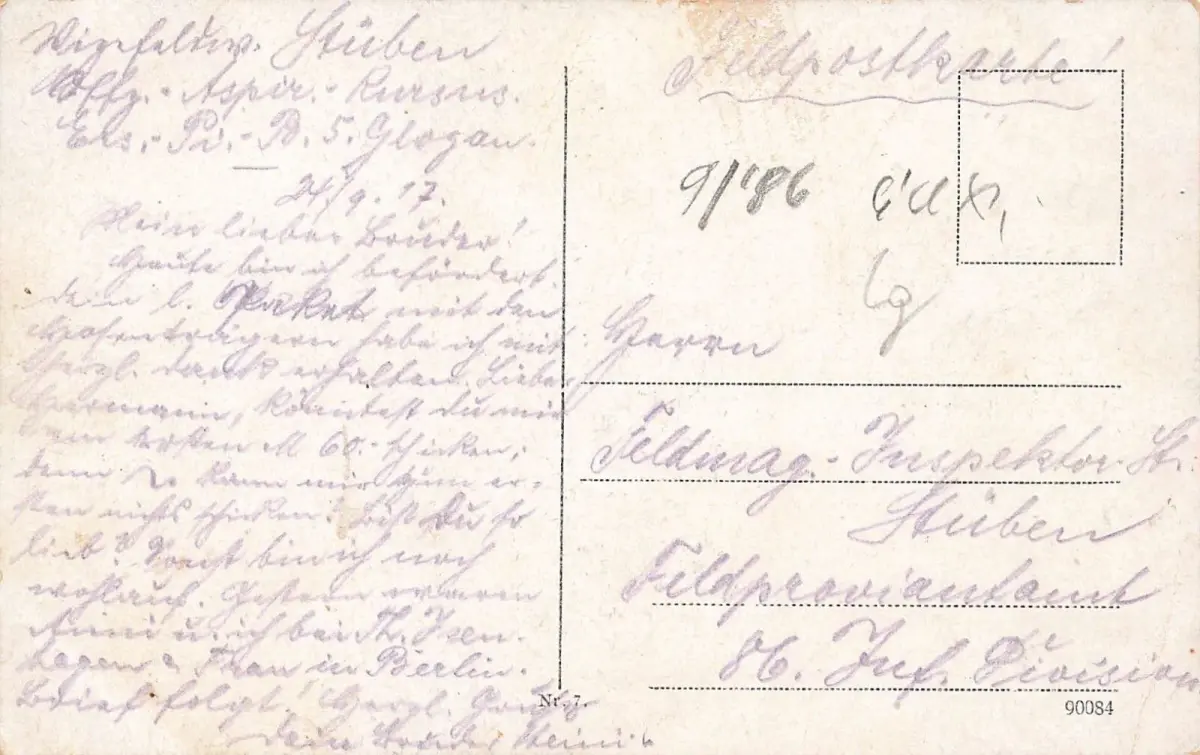 Vizefeldw. Stüben
Offz.-Aspir.-Kursus.
Ers.-Pi.-B. 5. Glogau.
24.9.17.
Mein lieber Bruder!
Heute bin ich befördert.
dein l. Paket mit den
Hosenträgern habe ich mit
herzl. Dank erhalten. Lieber
Hermann, könntest Du mir
zum ersten M 60.- schicken,
denn kann mir zum er-
sten nichts schicken? Bist Du so
lieb? Sonst bin ich noch
wohlauf. Gestern waren
Anni u. ich bei Th. Isen-
hagen & Frau in Berlin.
Brief folgt! Herzl. Gruß
Dein Bruder Heini.
Feldpostkarte!
9/'86
Herrn
Feldmag.-Inspektor-St.
Stüben
Feldproviantamt
86. Inf. Division
Nr. 7.
90084